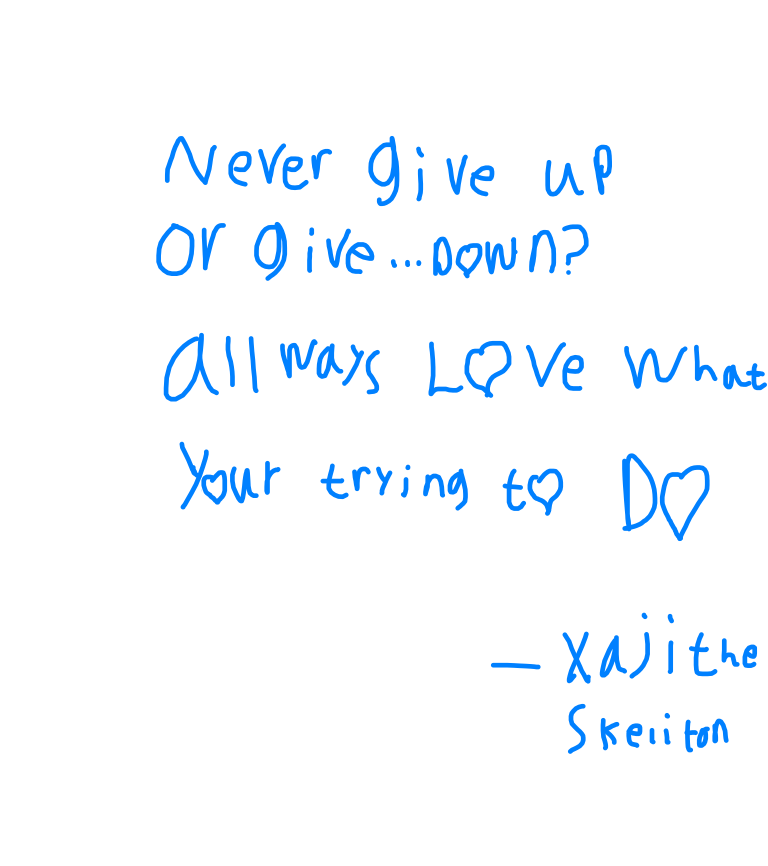 Never give up
or give...DOWN?
All ways LOVE What
Your trying to DO
— Xaji the
Skeiiton